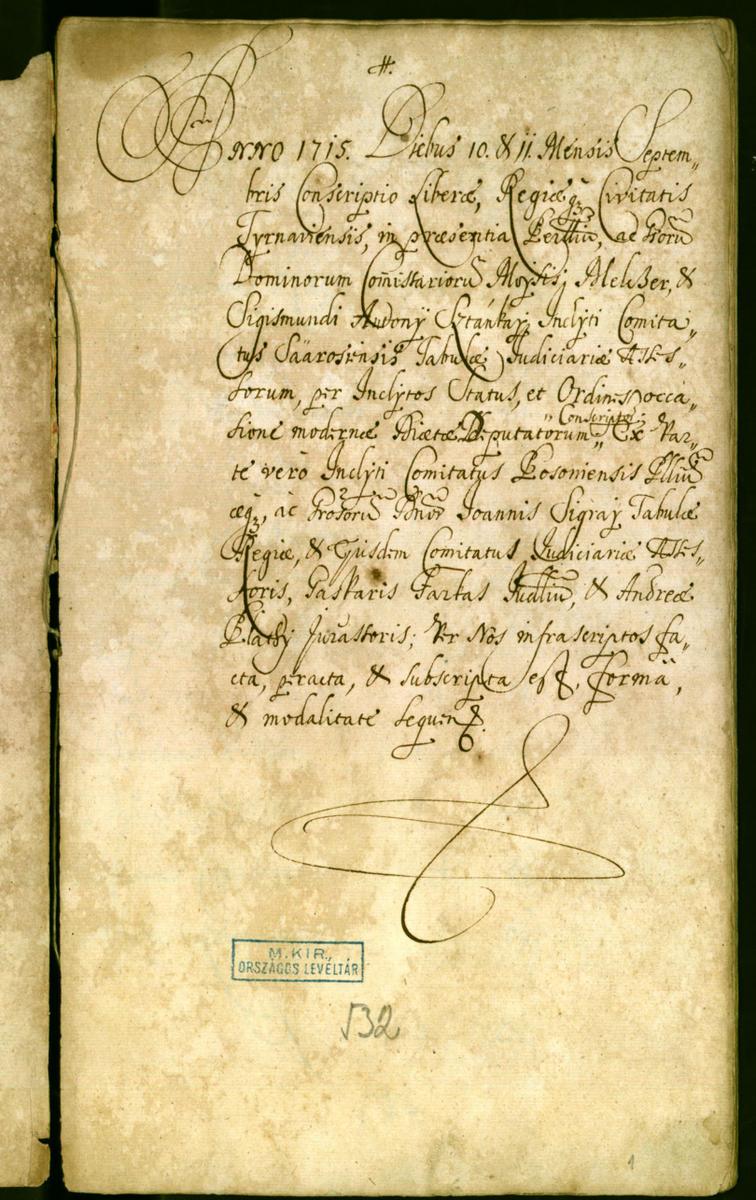 #.
ANNO 1715. Diebus 10. & 11. Mensis Septem„
bris Conscriptio Liberæ, Regiæq₃ Civitatis
Tyrnaviensis, in præsentia Perilliũ, ac Grosorũ
Dominorum Com̃issariorũ Aloysij Melczer, &
Sigismundi Antonÿ Sztánkaÿ, Inclÿti Comita„
tus Sáárosiensis Tabulæ Judiciariæ Asses„
sorum, per Inclytos Status, et Ordines occa„
sione modernæ Diætæ Deputatorum „Conscriptor; Ex Par„
te verò Inclÿti Comitatus Posoniensis Perilliũ
æq₃, ac Grosorũ Dnorũ Joannis Sigraÿ Tabulæ
Regiæ, & Ejusdem Comitatus Judiciariæ Asses„
soris, Gasparis Farkas Judliũ, & Andreæ
Plathÿ Jurassoris; Per Nos infrascriptos fa„
cta, peracta, & subscripta est, formâ,
& modalitate sequenti.
M. KIR.
ORSZÁGOS LEVÉLTÁR
532
1